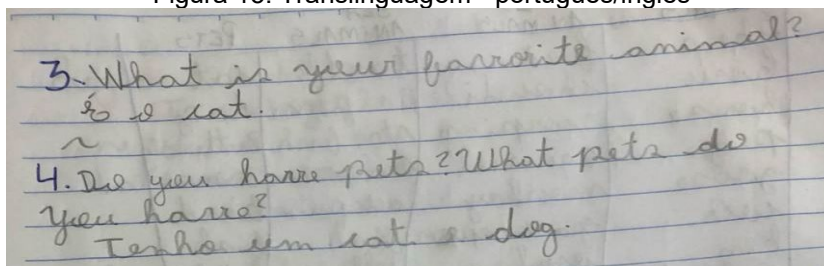 Figura 10: Translinguagem - português/inglês
3. What is your favorite animal?
é o cat.
~
4. Do you have pets? What pets do
you have?
Tenho um cat e dog.